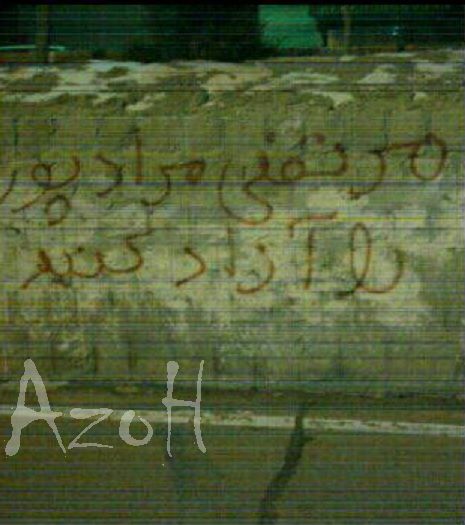 مرتضی مرادپور
را آزاد کنید
AzoH